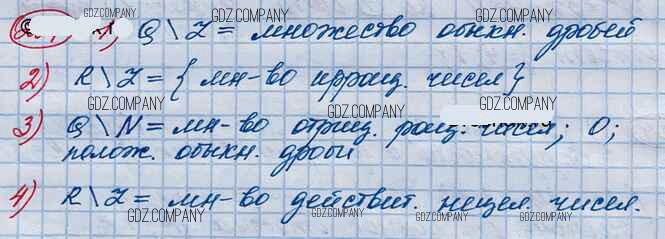 1) Q \ Z = множество обыкн. дробей
2) R \ Z = { мн-во иррац. чисел }
3) Q \ N = мн-во отриц. рац. чисел; 0;
полож. обыкн. дроби
4) R \ Z = мн-во действит. нецел. чисел.
GDZ.COMPANY
GDZ.COMPANY
GDZ.COMPANY
GDZ.COMPANY
GDZ.COMPANY
GDZ.COMPANY
GDZ.COMPANY
GDZ.COMPANY
GDZ.COMPANY
GDZ.COMPANY
GDZ.COMPANY
GDZ.COMPANY
GDZ.COMPANY